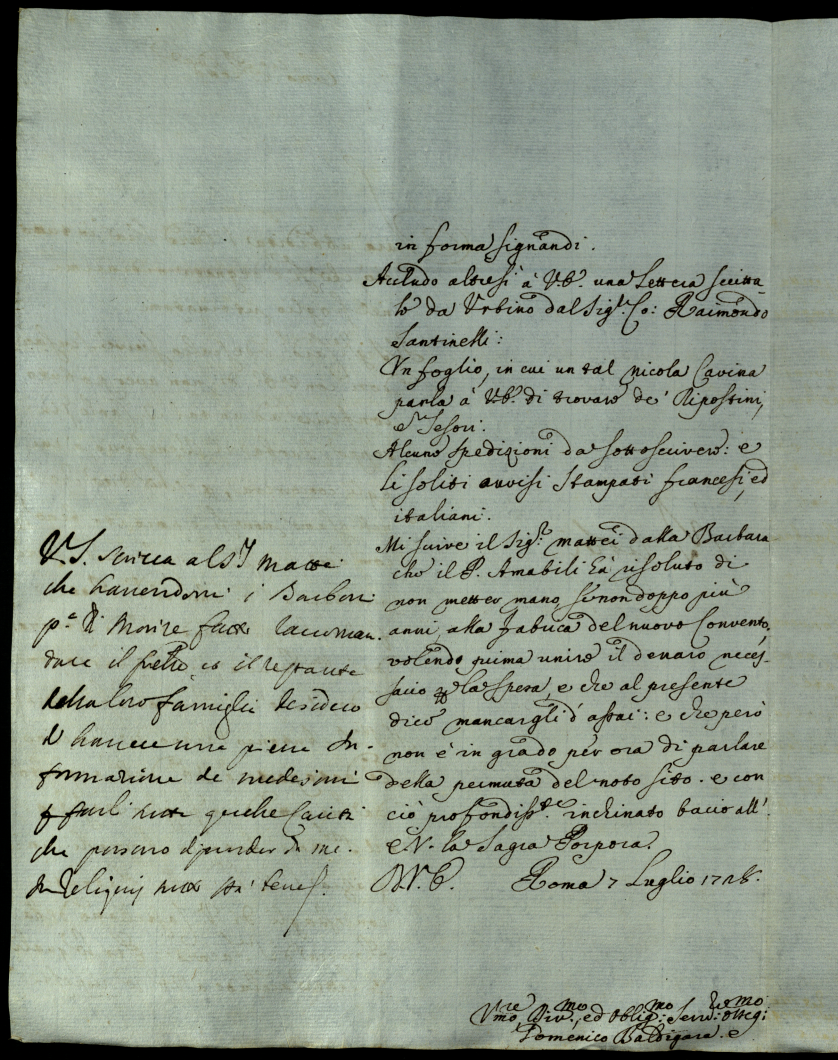 in forma signandi.
Accludo altresì à V.E. una Lettera scritta-
le da Urbino dal Sig.r Co: Raimondo
Santinelli:
Un foglio, in cui un tal Nicola Cavina
parla à V.E. di trovare de' Ripostini,
e Tesori.
Alcune spedizioni da sottoscivere: e
li soliti avvisi stampati francesi, ed
italiani.
Mi scive il Sig.r Mattei dalla Barbara
che il P. Amabili hà risoluto di
non metter mano, se non doppo più
anni, alla fabrica del nuovo Convento,
volendo prima unire il denaro neces-
sario per la spesa, e che al presente
dice mancargli d'assai: e che però
non è in grado per ora di parlare
della permuta del noto sito. e con
ciò profondiss.te inchinato bacio all'
E.V. la Sagra Porpora.
D.V.E. Roma 7 Luglio
V.S. scriva al S.r Mattei
che havendomi i Barboni
p.a di morire fatto raccoman-
dare il fratello et il restante
della loro famiglia desidero
d'havere una piena In-
formazione de medesimi
p farli tutte quelle Carità
che possano dipender da me.
Um.mo Div.mo, ed Oblig.mo Serv.re
Domenico Baldigara